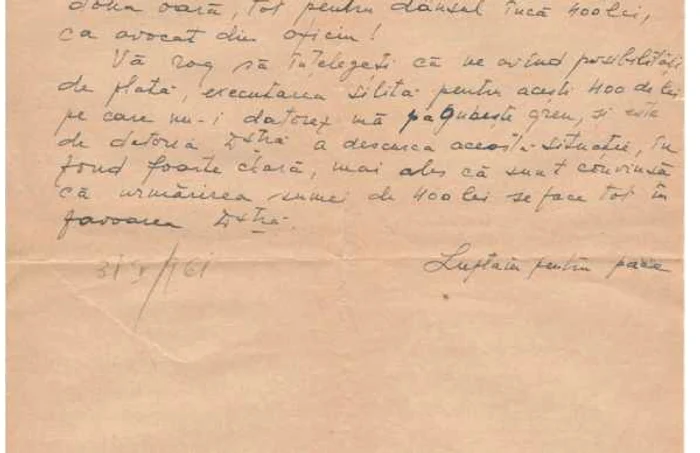 doua oară, tot pentru dânsul încă 400 lei,
ca avocat din oficiu!
Vă rog să înțelegeți că ne avînd posibilități
de plată, executarea silită pentru acești 400 de lei
pe care nu-i datorez mă păgubește greu, și este
de datoria Dstră a descurca aceasta situație, în
fond foarte clară, mai ales că sunt convinsă
că urmărirea sumei de 400 lei se face tot în
favoarea Dstră.
31/X/961
Luptăm pentru pace